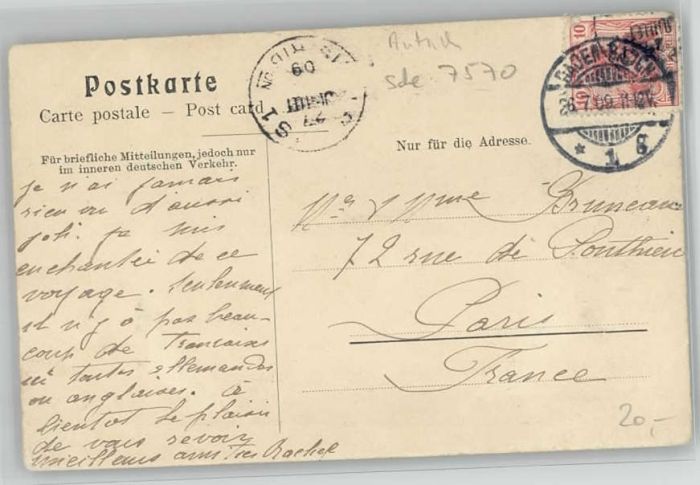 Postkarte
Carte postale – Post card
Für briefliche Mitteilungen, jedoch nur
im inneren deutschen Verkehr.
Nur für die Adresse.
Je n'ai jamais
rien vu d'aussi
joli. Je suis
enchantée de ce
voyage. Seulement
il n'y a pas beau-
coup de Francaises
toutes allemandes
ou anglaises. à
bientot le plaisir
de vous revoir
meilleures amities Rachel
Mr & Mme Bruneau
72 rue de Ponthieu
Paris
France
sde 7570
20,-
10
BADEN
26.7.09. 11-12V.
* 1 g
09
JUILLET
27